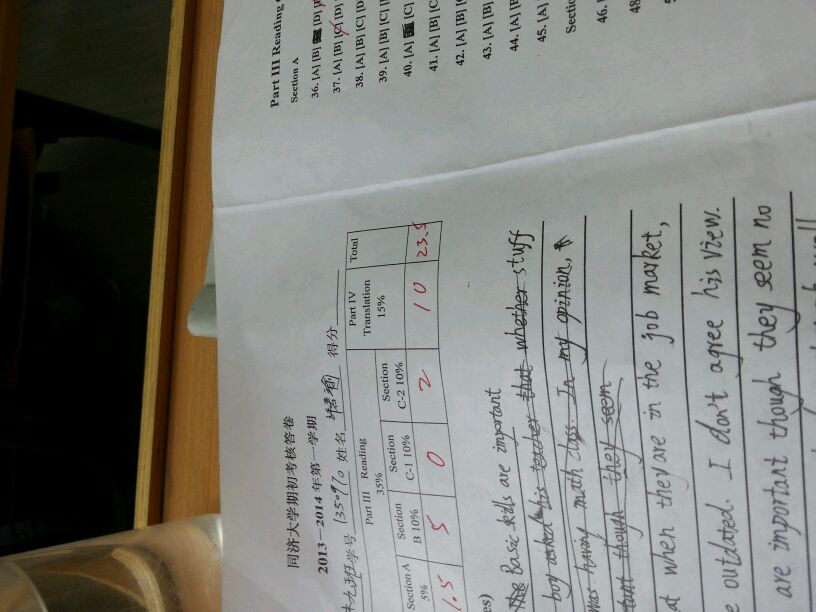 同济大学期初考核答卷
2013－2014 年第一学期
班学号 1350970 姓名 得分
Part III Reading 35% Part IV Translation 15% Total
Section A 5% Section B 10% Section C-1 10% Section C-2 10%
1.5 5 0 2 10 23.5
es)
The Basic skills are important
boy asked his teacher that whether stuff
was having math class. In my opinion,
that though they seem
at when they are in the job market,
e outdated. I don't agree his view.
are important though they seem no
Part III Reading
Section A
36. [A] [B] [D]
37. [A] [B] [C] [D]
38. [A] [B] [C] [D
39. [A] [B] [C]
40. [A] [C]
41. [A] [B] [C
42. [A] [B] [C
43. [A] [B]
44. [A] [B
45. [A]
Section
46.
48